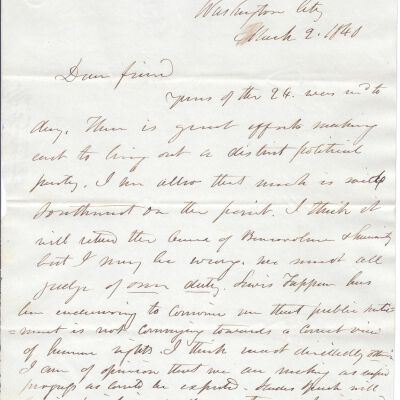 Washington City
March 2. 1840
Dear friend
Yours of the 24. was rec'd to
day. There is great efforts making
east to bring out a distinct political
party. I am also that much is said
on the point. I think it
will retard the cause of Benevolence & humanity
but I may be wrong. we must all
judge of our duty. Lewis Tappan has
been endeavoring to convince me that public senti=
=ment is not converging towards a correct view
of human rights. I think most decidedly otherwise
I am of opinion that we are making as rapid
progress as could be expected. Slades Speech will